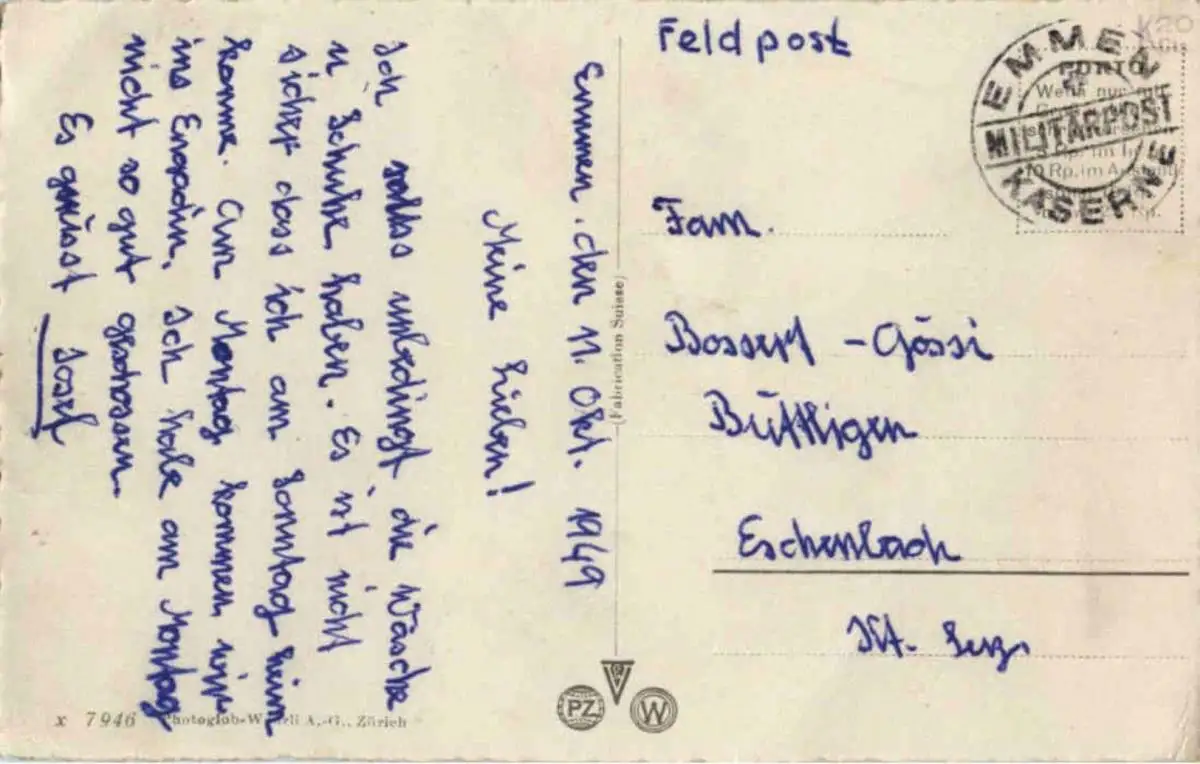 Emmen, den 11. Okt. 1949
Meine Lieben!
Ich sollte unbedingt die Wäsche
u Schuhe haben. Es ist nicht
sicher dass ich am Sonntag heim
komme. Am Montag kommen wir
ins Engadin. Ich habe am Montag
nicht so gut geschossen.
Es grüsst Josef
x 7946 Photoglob-Wehrli A.-G., Zürich
(Fabrication Suisse)
PZ
W
Feldpost
EMMEN
MILITÄRPOST
KASERNE
PORTO
Wenn nur mit
10 Rp. im
Fam.
Bossert - Gössi
Büttligen
Eschenbach
Kt. Luz.